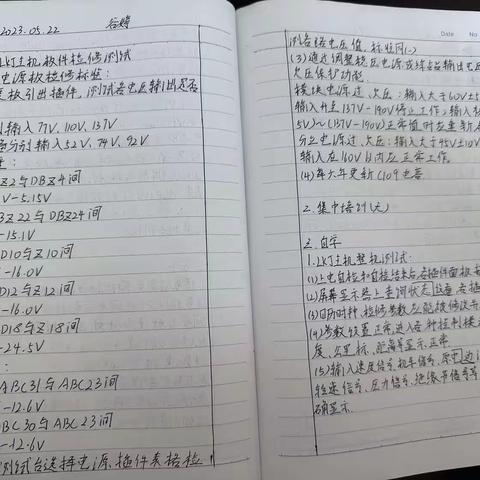 2023.05.22
LKJ主机板件检修测试
电源板检修标签:
板引出插件,测试各电压输出是否
输入77V、110V、137V
分别输入52V、74V、92V
Z2与DBZ4间
V-5.15V
BZ22与DBZ24间
-15.1V
D10与Z10间
-16.0V
D12与Z12间
-16.0V
D18与Z18间
-24.5V
ABC31与ABC23间
-12.6V
BC30与ABC23间
-12.6V
测试台选择电源、插件表格检
Date
No
测各路电压值,标签同(一)
(3)通过调整稳压电源或综合台输出电压
欠压保护功能.
模块电源过、欠压:输入大于60V±5
输入升至137V-190V停止工作;输入
5V)~(137V-190V)正常值时应重新
分立电源过、欠压:输入大于45V±10V
输入在160V以内应正常工作。
(4)每六年更新C109电容
2.集中培训(无)
3.自学
1.LKJ主机整机测试:
(1)上电自检和自检结束后,各插件面板
(2)屏幕显示器上查询状态设备,各插
(3)日历时钟,检修参数应能被修改并
(4)参数设置正常,进入各种控制模
度、公里标、距离等显示正常
(5)输入速度信号、机车信号、原边
转速信号、压力信号、绝缘节信号等
确显示.